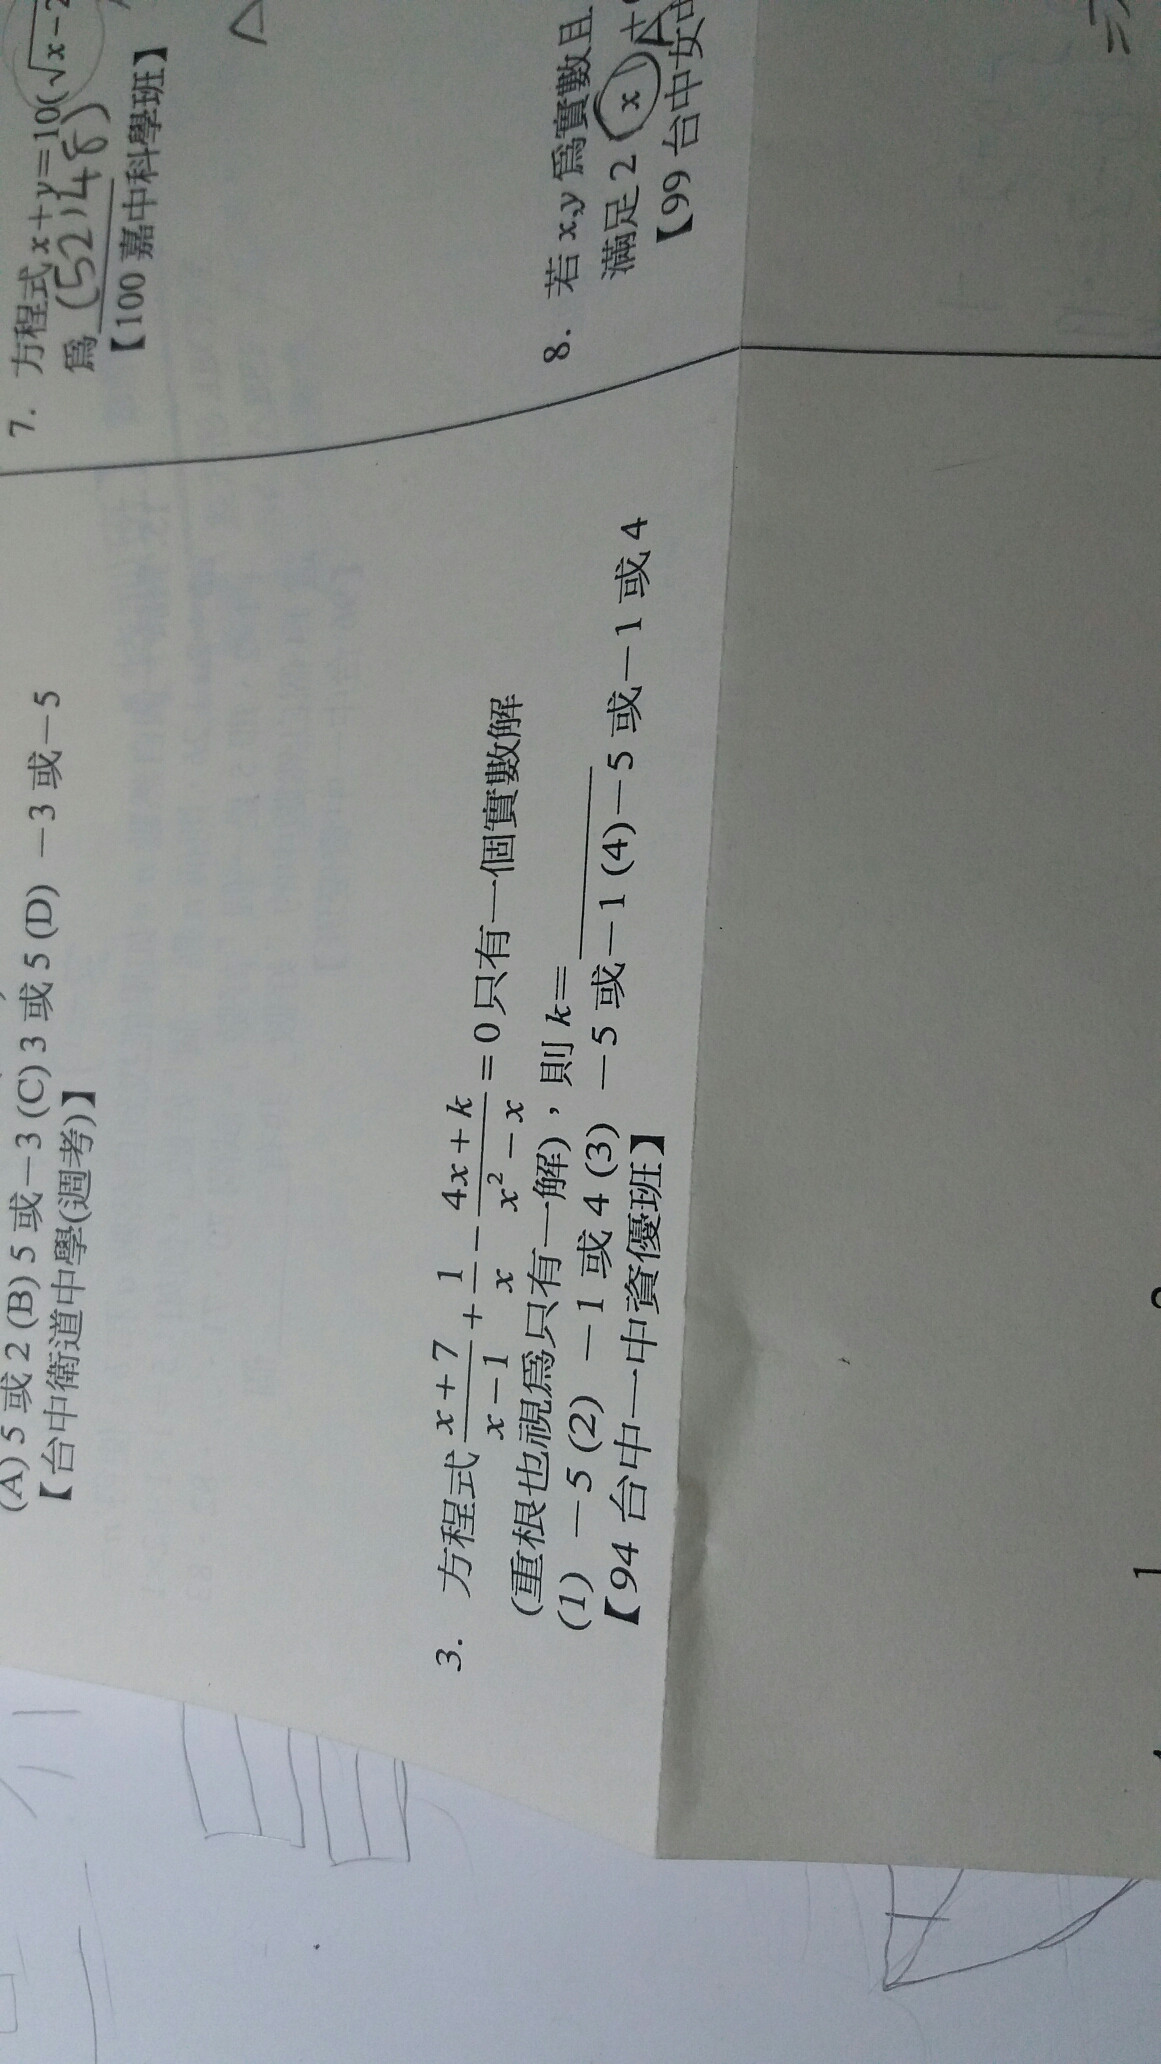 (A) 5 或 2 (B) 5 或 −3 (C) 3 或 5 (D) −3 或 −5
【台中衛道中學(週考)】
3. 方程式 \frac{x+7}{x-1} + \frac{1}{x} - \frac{4x+k}{x^2-x} = 0 只有一個實數解
(重根也視爲只有一解)，則 k=______
(1) −5 (2) −1 或 4 (3) −5 或 −1 (4) −5 或 −1 或 4
【94 台中一中資優班】
7. 方程式 x+y=10(√x−2
爲 (52,48)
【100 嘉中科學班】
8. 若 x,y 爲實數且
滿足 2(x)+
【99 台中女中